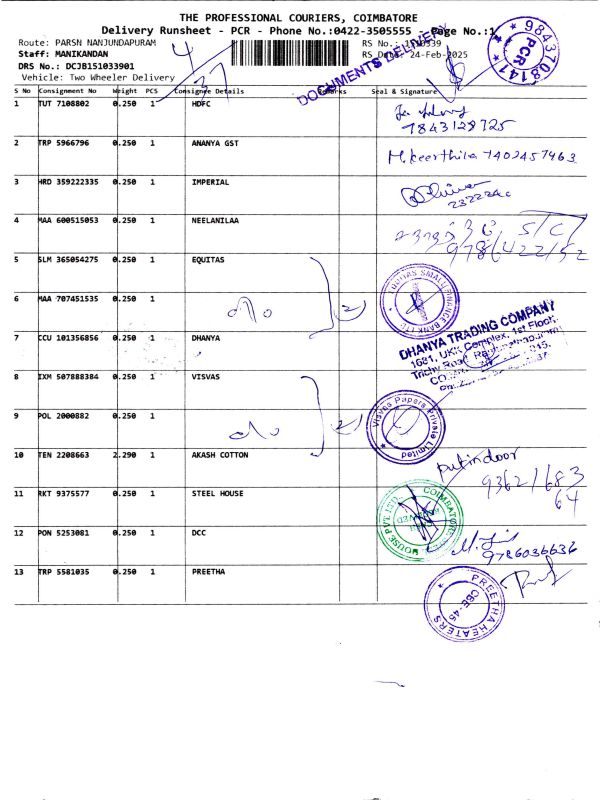 THE PROFESSIONAL COURIERS, COIMBATORE
Delivery Runsheet - PCR - Phone No.:0422-3505555 - Page No.:1
Route: PARSN NANJUNDAPURAM
Staff: MANIKANDAN
RS Date: 24-Feb-2025
DRS No.: DCJB151033901
Vehicle: Two Wheeler Delivery
4
37
DOCUMENTS DELIVERY
9843708141
PCR
S No Consignment No Weight PCS Consignee Details Remarks Seal & Signature
1 TUT 7108802 0.250 1 HDFC
7843128725
2 TRP 5966796 0.250 1 ANANYA GST
M.Keerthika 7402457463
3 HRD 359222335 0.250 1 IMPERIAL
4 MAA 600515053 0.250 1 NEELANILAA
9786422152
5 SLM 365054275 0.250 1 EQUITAS
EQUITAS SMALL FINANCE BANK LTD
6 MAA 707451535 0.250 1
7 CCU 101356856 0.250 1 DHANYA
DHANYA TRADING COMPANY
1081, UKK Complex, 1st Floor,
Trichy Road, Ramanathapuram
8 IXM 507888384 0.250 1 VISVAS
9 POL 2000882 0.250 1
Visvas Papers Private Limited
10 TEN 2208663 2.290 1 AKASH COTTON
93621683
64
11 RKT 9375577 0.250 1 STEEL HOUSE
HOUSE PVT LTD. COIMBATORE
12 PON 5253081 0.250 1 DCC
9786036636
13 TRP 5581035 0.250 1 PREETHA
PREETHA HEATERS
CBE-45